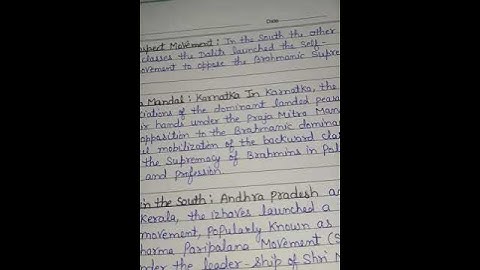 Date
espect Movement: In the South the other
classes the Dalits launched the Self-
ovement to oppose the Brahmanic Supre
a Mandal: Karnatka In Karnatka, the
ciations of the dominant landed peasa
ir hands under the Praja Mitra Man
opposition to the Brahmanic dominan
ul mobilization of the backward cla
the Supremacy of Brahmins in Pol
and profession
in the South: Andhra Pradesh an
Kerala, the izhaves launched a
movement, Popularly Known as
harma Paripalana Movement (S
nder the leader-ship of Shri N